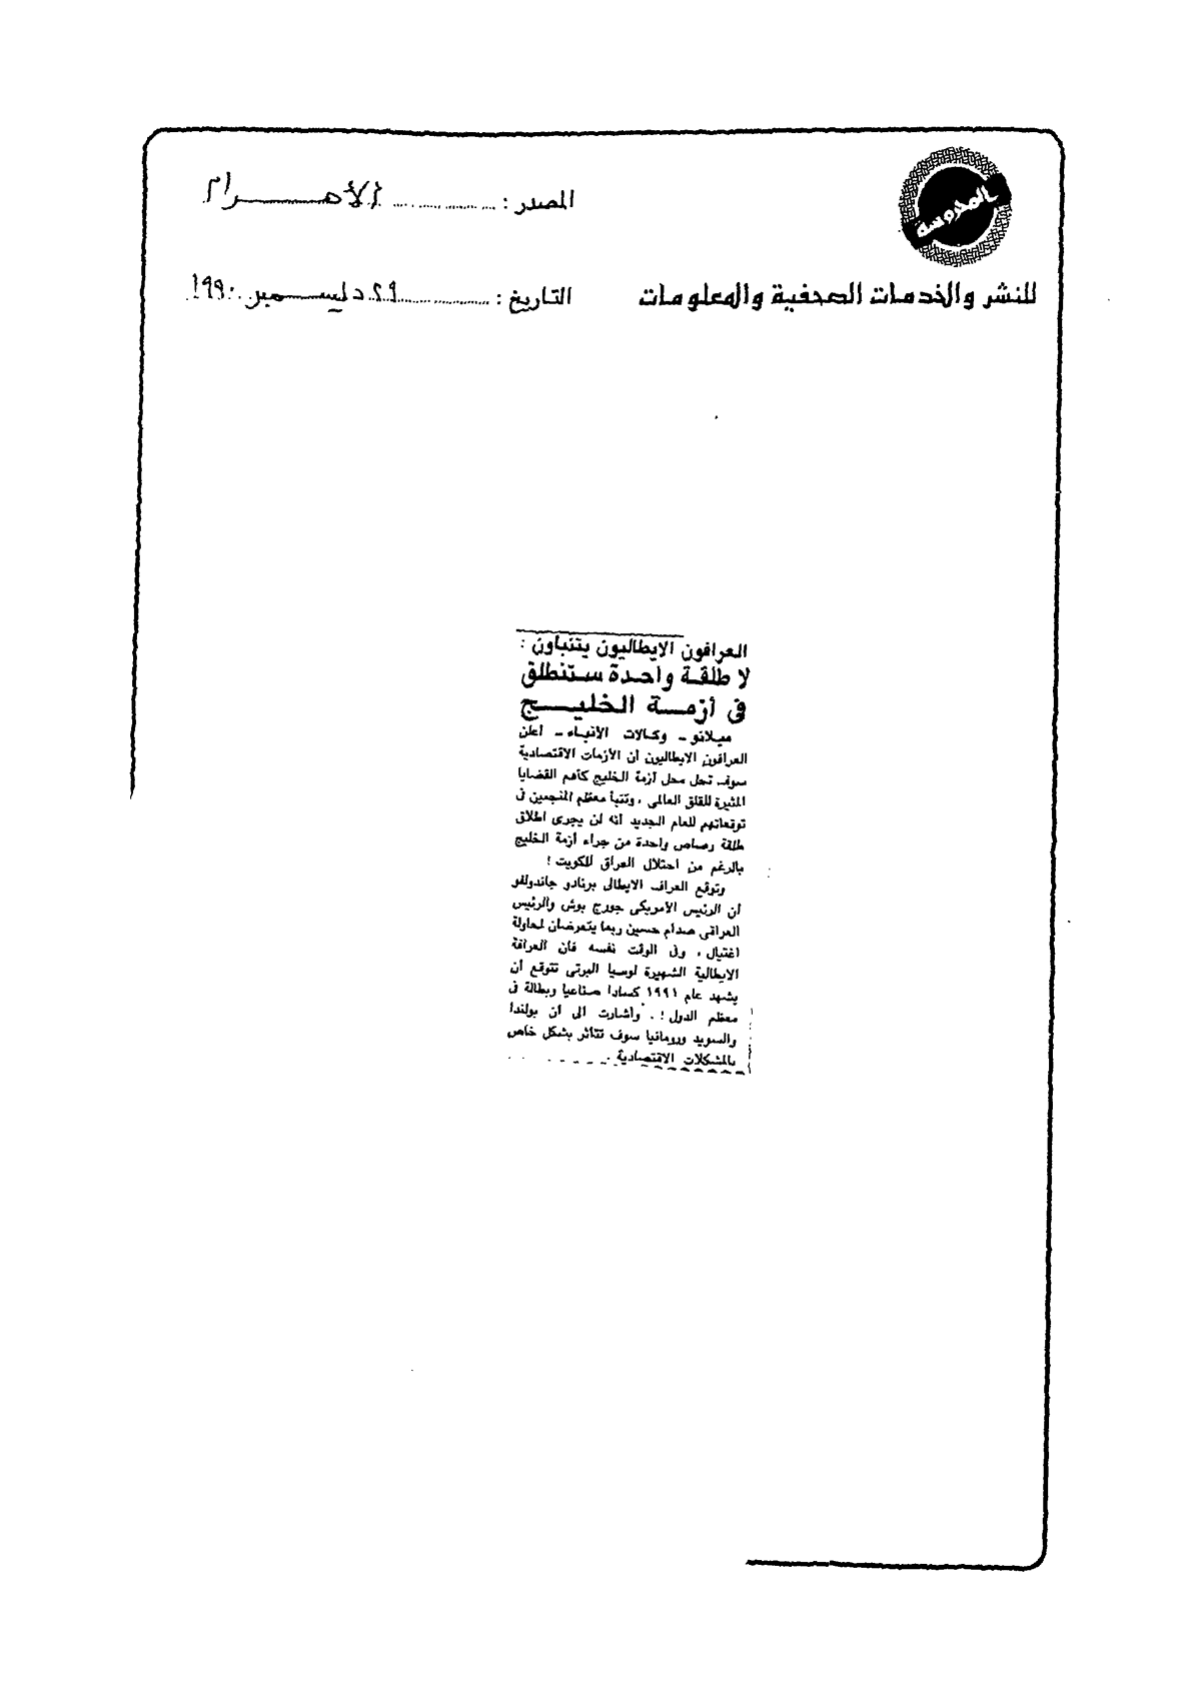 المحروسة
المصدر : الأهرام
للنشر والخدمات الصحفية والمعلومات
التاريخ : ٢٩ ديسمبر ١٩٩٠
العرافون الايطاليون يتنباون :
لا طلقة واحدة ستنطلق
فى أزمة الخليج
ميلانو - وكالات الأنباء - أعلن
العرافون الايطاليون أن الأزمات الاقتصادية
سوف تحل محل أزمة الخليج كأهم القضايا
المثيرة للقلق العالمى ، وتنبأ معظم المنجمين فى
توقعاتهم للعام الجديد أنه لن يجرى اطلاق
طلقة رصاص واحدة من جراء أزمة الخليج
بالرغم من احتلال العراق للكويت !
وتوقع العراف الايطالى برناردو جاندولفو
أن الرئيس الأمريكى جورج بوش والرئيس
العراقى صدام حسين ربما يتعرضان لمحاولة
اغتيال ، وفى الوقت نفسه فأن العرافة
الايطالية الشهيرة لوسيا البرتى تتوقع أن
يشهد عام ١٩٩١ كسادا صناعيا وبطالة فى
معظم الدول ! . وأشارت الى أن بولندا
والسويد ورومانيا سوف تتأثر بشكل خاص
بالمشكلات الاقتصادية .